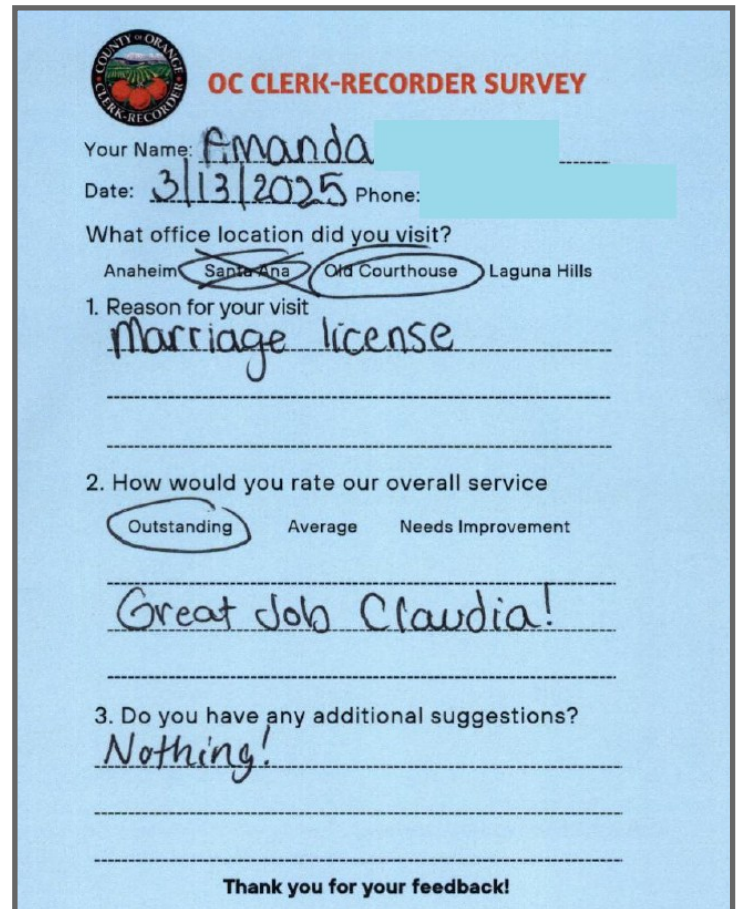 COUNTY OF ORANGE
CLERK-RECORDER
OC CLERK-RECORDER SURVEY
Your Name: Amanda
Date: 3/13/2025 Phone:
What office location did you visit?
Anaheim Santa Ana Old Courthouse Laguna Hills
1. Reason for your visit
Marriage license
2. How would you rate our overall service
Outstanding Average Needs Improvement
Great Job Claudia!
3. Do you have any additional suggestions?
Nothing!
Thank you for your feedback!